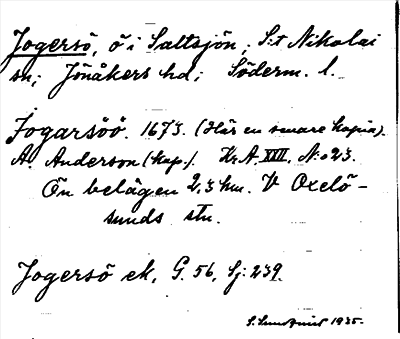 Jogersö, ö i Saltsjön, S:t Nikolai
sn; Jönåkers hd; Söderm. l.
Jogarsöö. 1673. (Här en senare kopia).
A. Anderson (kop.). Kr. A. XXII. N:o 23.
Ön belägen 2,3 km. V Oxelö-
sunds stn.
Jogersö ek. G. 56, Sj: 239.
S. Sundquist 1935.